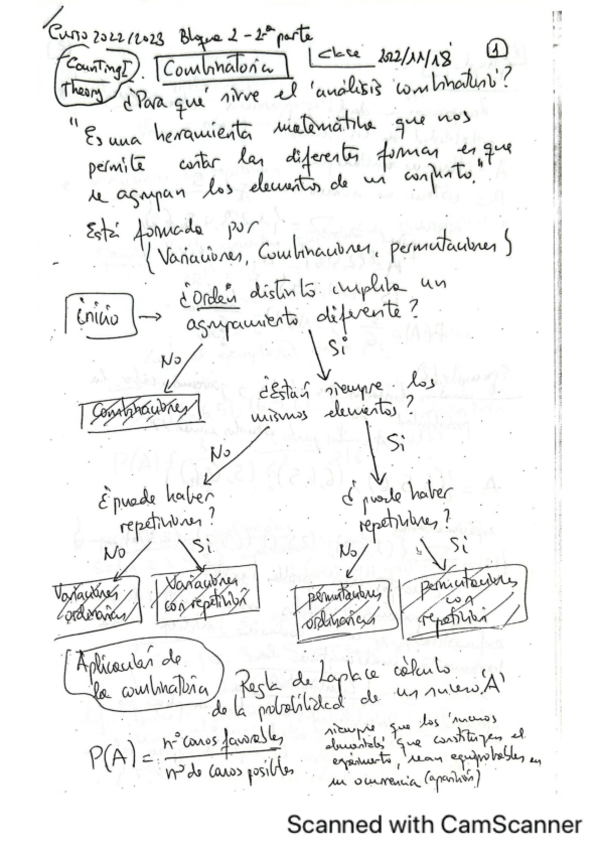 Curso 2022/2023 Bloque 2 - 2ª parte
Clase 2022/11/18 1
Counting Theory
Combinatoria
¿Para qué sirve el 'análisis combinatorio'?
"Es una herramienta matemática que nos
permite contar las diferentes formas en que
se agrupan los elementos de un conjunto."
Está formado por
{Variaciones, Combinaciones, permutaciones}
inicio → ¿Orden distinto implica un
agrupamiento diferente?
No
Si
Combinaciones
¿Están siempre los
mismos elementos?
No
Si
¿puede haber
repeticiones?
¿puede haber
repeticiones?
No
Si
No
Si
Variaciones
ordinarias
Variaciones
con repetición
permutaciones
ordinarias
permutaciones
con
repetición
Aplicación de
la combinatoria
Regla de Laplace cálculo
de la probabilidad de un suceso 'A'
P(A) = nº casos favorables
nº de casos posibles
siempre que los 'sucesos
elementales' que constituyen el
experimento, sean equiprobables en
su ocurrencia (aparición)
Scanned with CamScanner